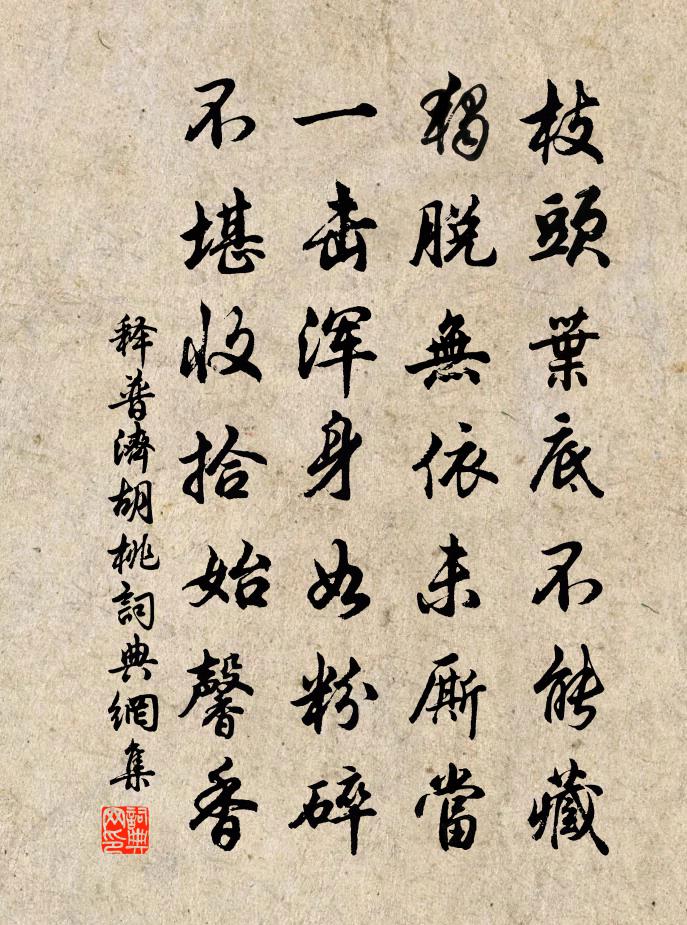 枝頭葉底不能藏
獨脫無依未厮當
一击渾身如粉碎
不堪收拾始馨香
释普濟胡桃詞典網集
詞典
网印